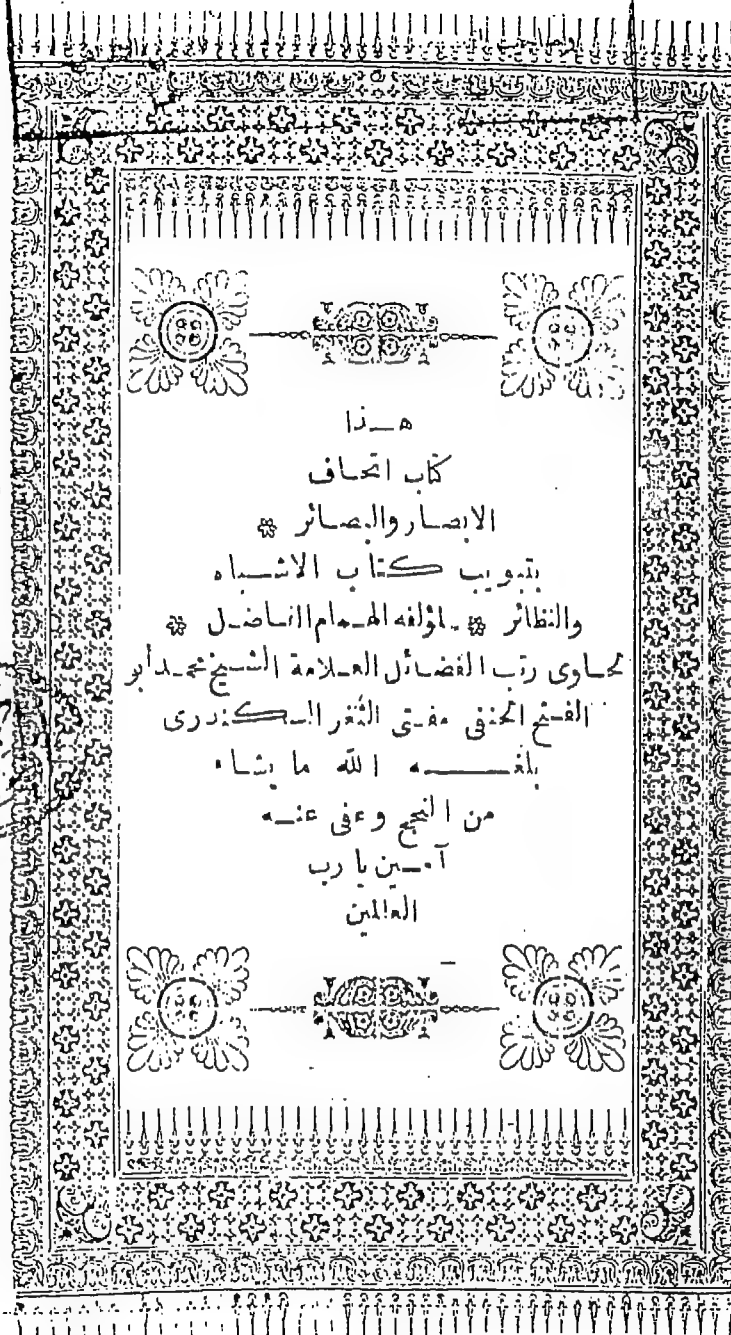 هـذا
كتاب اتحاف
الابصار والبصائر ❊
بتبويب كتاب الاشباه
والنظائر ❊ لمؤلفه الهمام الفاضل ❊
محاوى رتب الفضائل العلامة الشيخ محمد أبو
الفتح الحنفى مفتى الثغر السكندرى
بلغه الله ما يشاء
من النجح وعفى عنه
آمين يا رب
العالمين